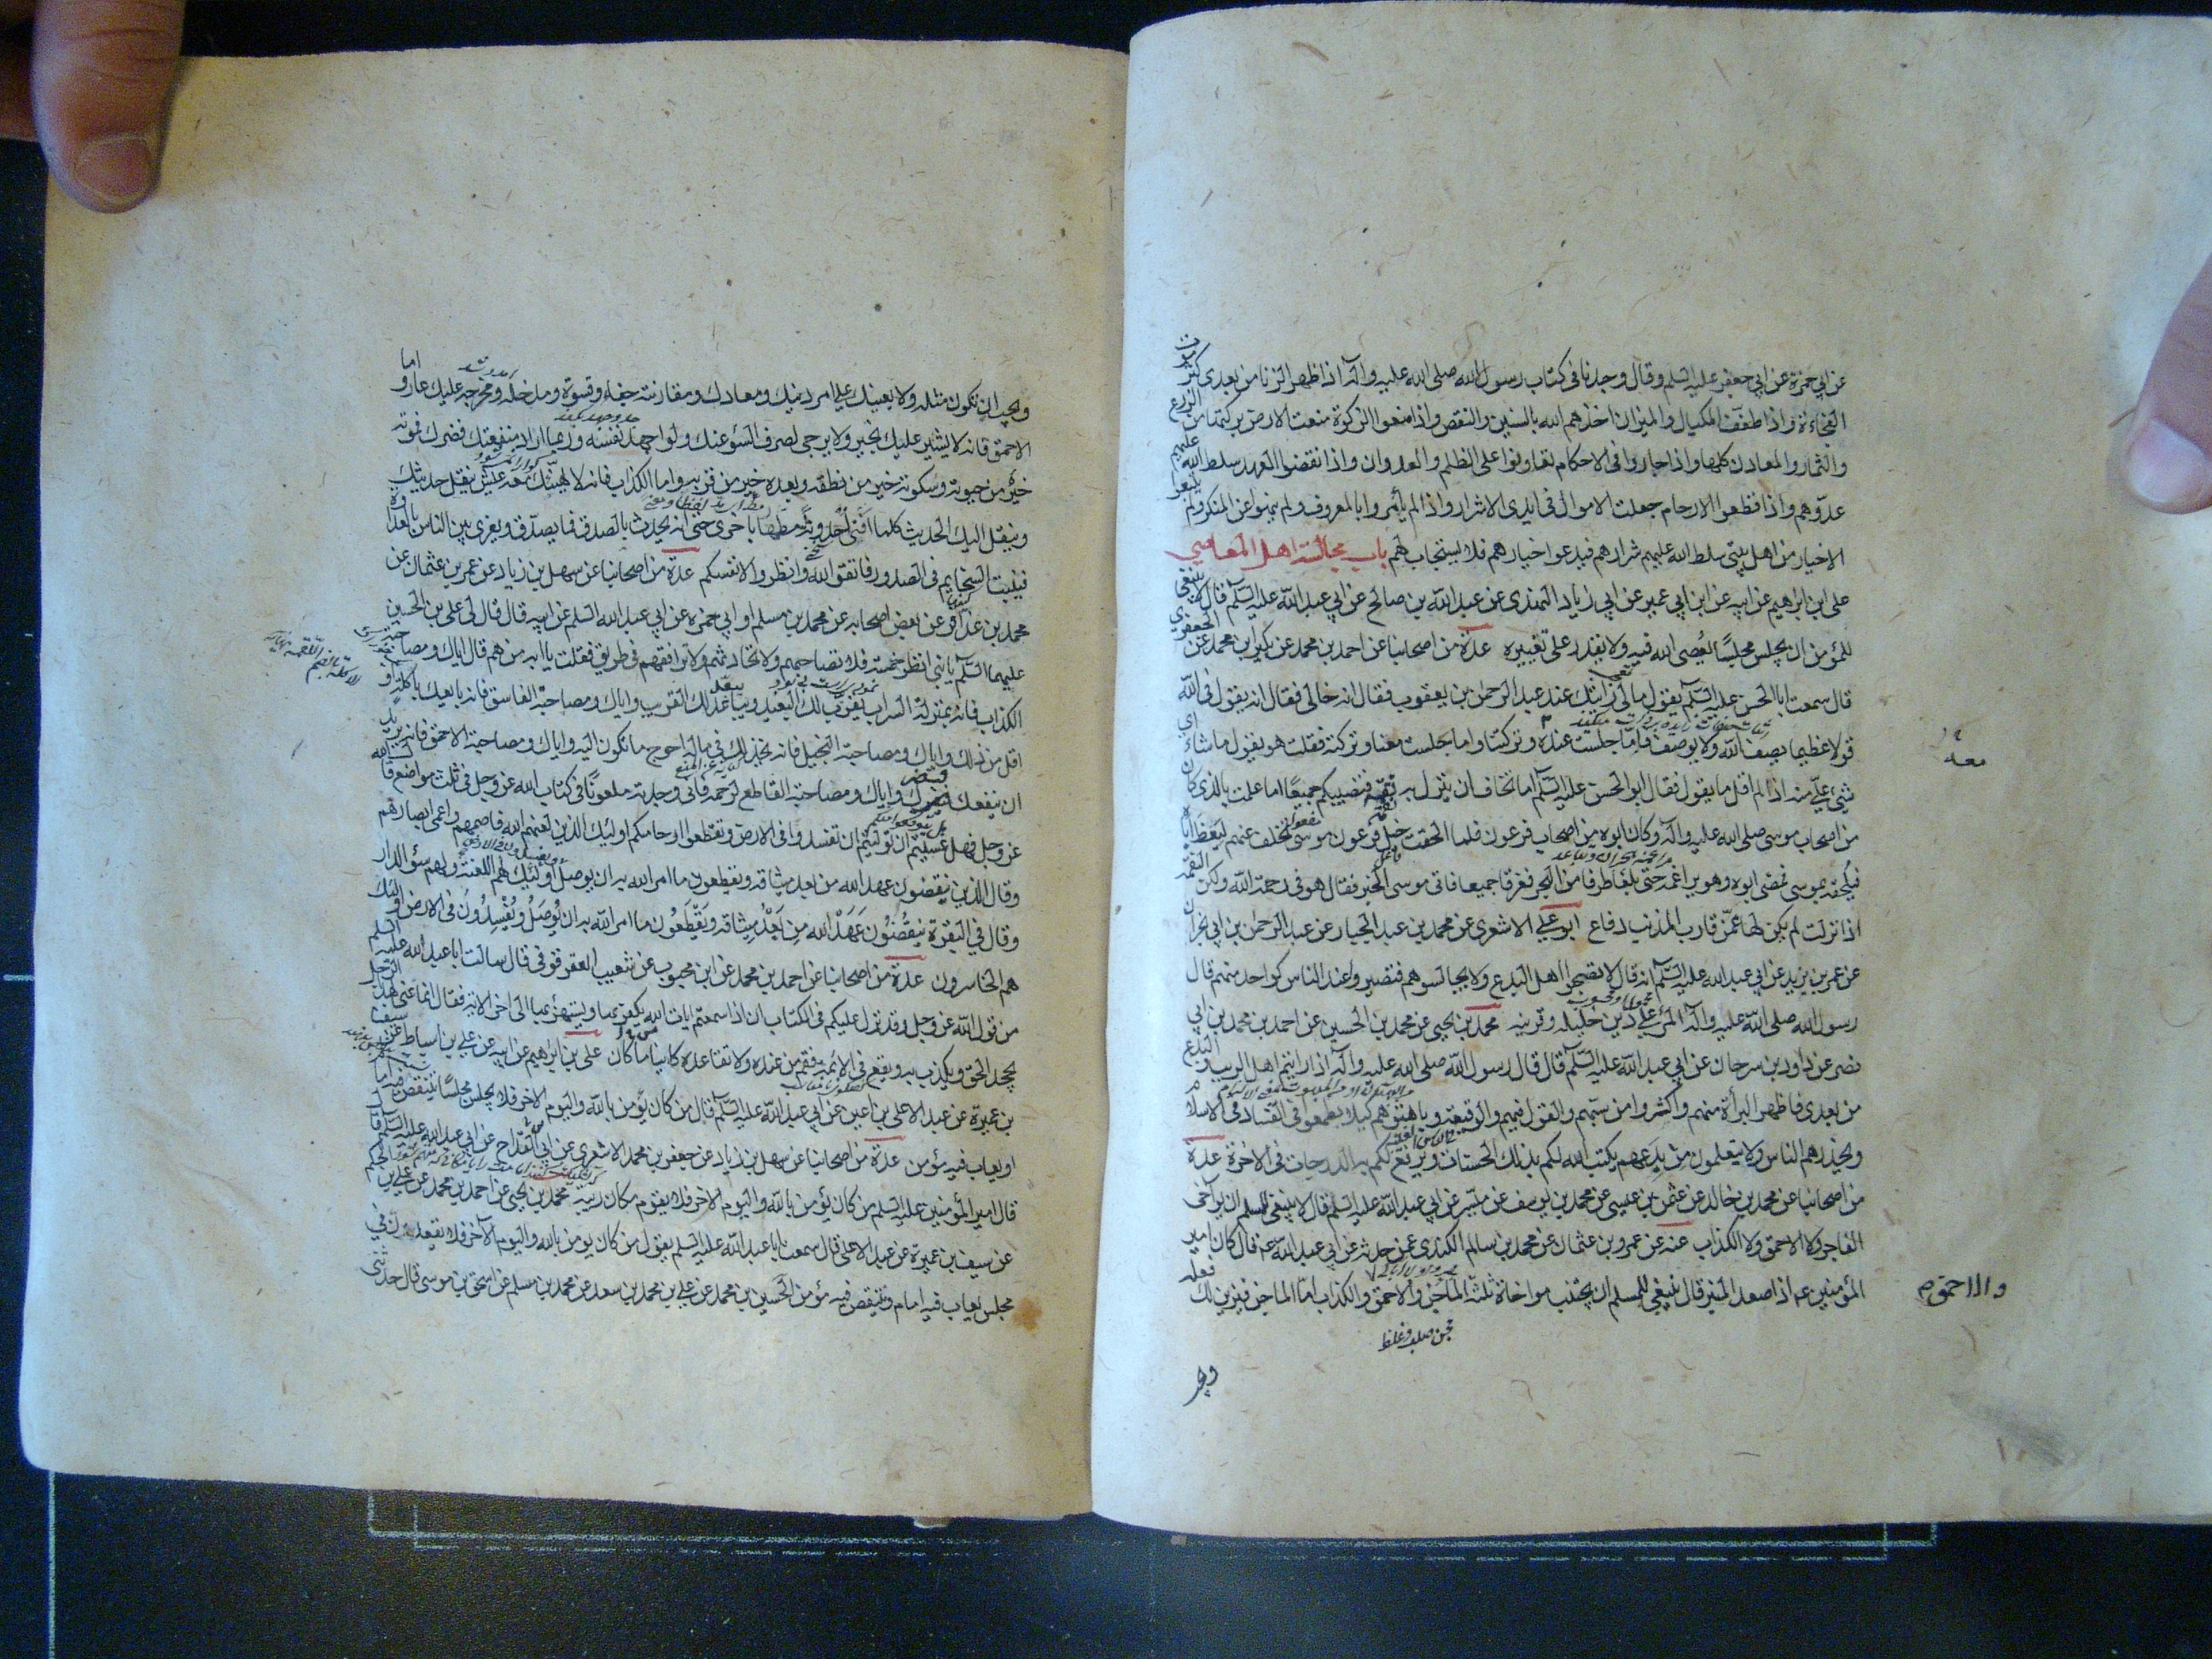 عن ابي حمزة عن ابي جعفر عليه السلم وقال وجدنا في كتاب رسول الله صلى الله عليه وآله اذا ظهر الزنا من بعدي كثر موت
الفجاءة واذا طفف المكيال والميزان اخذهم الله بالسنين والنقص واذا منعوا الزكوة منعت الارض بركتها من الزرع
والثمار والمعادن كلها واذا جاروا في الاحكام تعاونوا على الظلم والعدوان واذا نقضوا العهد سلط الله عليهم
عدوهم واذا قطعوا الارحام جعلت الاموال في ايدي الاشرار واذا لم يأمروا بالمعروف ولم ينهوا عن المنكر ولم يتبعوا
الاخيار من اهل بيتي سلط الله عليهم شرارهم فيدعوا خيارهم فلا يستجاب لهم باب مجالسة اهل المعاصي
علي ابن ابراهيم عن ابيه عن ابن ابي عمير عن ابي زياد النهدي عن عبد الله بن صالح عن ابي عبد الله عليه السلم قال لا ينبغي
للمؤمن ان يجلس مجلسًا يُعصى الله فيه ولا يقدر على تغييره عدة من اصحابنا عن احمد بن محمد عن بكر ابن محمد عن الجعفري
قال سمعت ابا الحسن عليه السلم يقول مالي رايتك عند عبد الرحمن بن يعقوب فقال انه خالي فقال انه يقول في الله
قولا عظيما يصف الله ولا يوصف فاما جلست عنده وتركتنا واما جلست معنا وتركته فقلت هو يقول ما شاء اي
شئ علي منه اذا لم اقل ما يقول فقال ابو الحسن عليه السلم اما تخاف ان ينزل به نقمة فتصيبكم جميعًا اما علمت بالذي كان
من اصحاب موسى صلى الله عليه وآله وكان ابوه من اصحاب فرعون فلما لحقت خيل فرعون موسى تخلف عنهم ليعظ اباه
فيلحقه بموسى فمضى ابوه وهو يراغمه حتى بلغا طرفا من البحر فغرقا جميعا فاتى موسى الخبر فقال هو في رحمة الله ولكن النقمة
اذا نزلت لم يكن لها عمن قارب المذنب دفاع ابو علي الاشعري عن محمد بن عبد الجبار عن عبد الرحمن بن ابي نجران
عن عمر بن يزيد عن ابي عبد الله عليه السلم انه قال لا تصحبوا اهل البدع ولا تجالسوهم فتصيروا عند الناس كواحد منهم قال
رسول الله صلى الله عليه وآله المرء على دين خليله وقرينه محمد بن يحيى عن محمد بن الحسين عن احمد بن محمد بن ابي
نصر عن داود بن سرحان عن ابي عبد الله عليه السلم قال قال رسول الله صلى الله عليه وآله اذا رايتم اهل الريب والبدع
من بعدي فاظهروا البرأة منهم واكثروا من سبهم والقول فيهم والوقيعة وباهتوهم كيلا يطمعوا في الفساد في الاسلام
ويحذرهم الناس ولا يتعلمون من بدعهم يكتب الله لكم بذلك الحسنات ويرفع لكم به الدرجات في الاخرة عدة
من اصحابنا عن محمد بن خالد عن عثمن بن عيسى عن محمد بن يوسف عن ميسر عن ابي عبد الله عليه السلم قال لا ينبغي للمسلم ان يواخي
الفاجر ولا الاحمق ولا الكذاب عنه عن عمرو بن عثمان عن محمد بن سالم الكندي عمن حدثه عن ابي عبد الله عم قال كان امير
المؤمنين عم اذا صعد المنبر قال ينبغي للمسلم ان يجتنب مواخاة ثلثة الماجن والاحمق والكذاب اما الماجن فيزين لك فعله
معه
والاحمق
ويحب
ويحب ان تكون مثله ولا يعينك على امر دينك ومعادك ومقارنته جفاء وقسوة ومدخله ومخرجه عليك عار واما
الاحمق فانه لا يشير عليك بخير ولا يرجى لصرف السوء عنك ولو اجهد نفسه وربما اراد منفعتك فضرك فموته
خير من حيوته وسكوته خير من نطقه وبعده خير من قربه واما الكذاب فانه لا يهنئك معه عيش ينقل حديثك
وينقل اليك الحديث كلما افنى احدوثة مطها باخرى حتى انه يحدث بالصدق فما يصدق ويغري بين الناس بالعداوة
فينبت السخايم في الصدور فاتقوا الله وانظروا لانفسكم عدة من اصحابنا عن سهل بن زياد عن عمرو بن عثمان عن
محمد بن عذافر عن بعض اصحابه عن محمد بن مسلم او ابي حمزه عن ابي عبد الله السلم عن ابيه قال قال لي علي بن الحسين
عليهما السلم يا بني انظر خمسة فلا تصاحبهم ولا تحادثهم ولا ترافقهم في طريق فقلت يا ابه من هم قال اياك ومصاحبة
الكذاب فانه بمنزلة السراب يقرب لك البعيد ويباعد لك القريب واياك ومصاحبة الفاسق فانه بايعك باكلة او
اقل من ذلك واياك ومصاحبة البخيل فانه يخذلك في ماله احوج ما تكون اليه واياك ومصاحبة الاحمق فانه يريد
ان ينفعك فيضرك واياك ومصاحبة القاطع لرحمه فاني وجدته ملعونًا في كتاب الله عز وجل في ثلث مواضع قال الله
عز وجل فهل عسيتم ان توليتم ان تفسدوا في الارض وتقطعوا ارحامكم اوليك الذين لعنهم الله فاصمهم واعمى ابصارهم
وقال الذين ينقضون عهد الله من بعد ميثاقه ويقطعون ما امر الله به ان يوصل اولئك لهم اللعنة ولهم سوء الدار
وقال في البقرة ينقضون عهد الله من بعد ميثاقه ويقطعون ما امر الله به ان يوصل ويفسدون في الارض اوليك
هم الخاسرون عدة من اصحابنا عن احمد بن محمد عن ابن محبوب عن شعيب العقرقوفي قال سالت ابا عبد الله عليه السلم
من قول الله عز وجل وقد نزل عليكم في الكتاب ان اذا سمعتم ايات الله يكفر بها ويستهزئ بها الى اخر الاية فقال انما عنى بهذا الرجل
يجحد الحق ويكذب به ويقع في الائمة فقم من عنده ولا تقاعده كاينا ما كان علي بن ابراهيم عن ابيه عن علي بن اسباط عن سيف
بن عميرة عن عبد الاعلى بن اعين عن ابي عبد الله عليه السلم قال من كان يؤمن بالله واليوم الاخر فلا يجلس مجلسًا ينتقص فيه امام
او يعاب فيه مؤمن عدة من اصحابنا عن سهل بن زياد عن جعفر بن محمد الاشعري عن ابن القداح عن ابي عبد الله عليه السلم قال
قال امير المؤمنين عليه السلم من كان يؤمن بالله واليوم الاخر فلا يقوم مكان ريبة محمد بن يحيى عن احمد بن محمد عن علي بن الحكم
عن سيف بن عميرة عن عبد الاعلى قال سمعت ابا عبد الله عليه السلم يقول من كان يومن بالله واليوم الآخر فلا يقعدون في
مجلس يعاب فيه امام وينتقص فيه مؤمن الحسين بن محمد عن علي بن محمد بن سعد عن محمد بن مسلم عن اسحق بن موسى قال حدثني